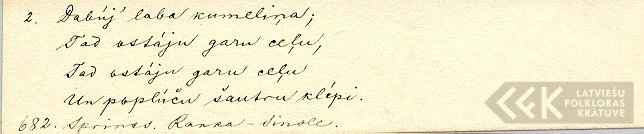 2. Dabūj' laba kumeliņa;
Tad ostāju garu ceļu,
Tad ostāju garu ceļu
Un poplūču šautru klēpi.
682. Sprincs. Ranka-Sinole.
LATVIEŠU
FOLKLORAS
KRĀTUVE